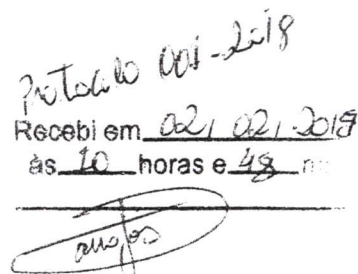 Protocolo 001-2018
Recebi em 002, 02, 2018
às 10 horas e 48